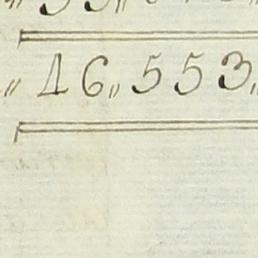 〃 46〃553〃